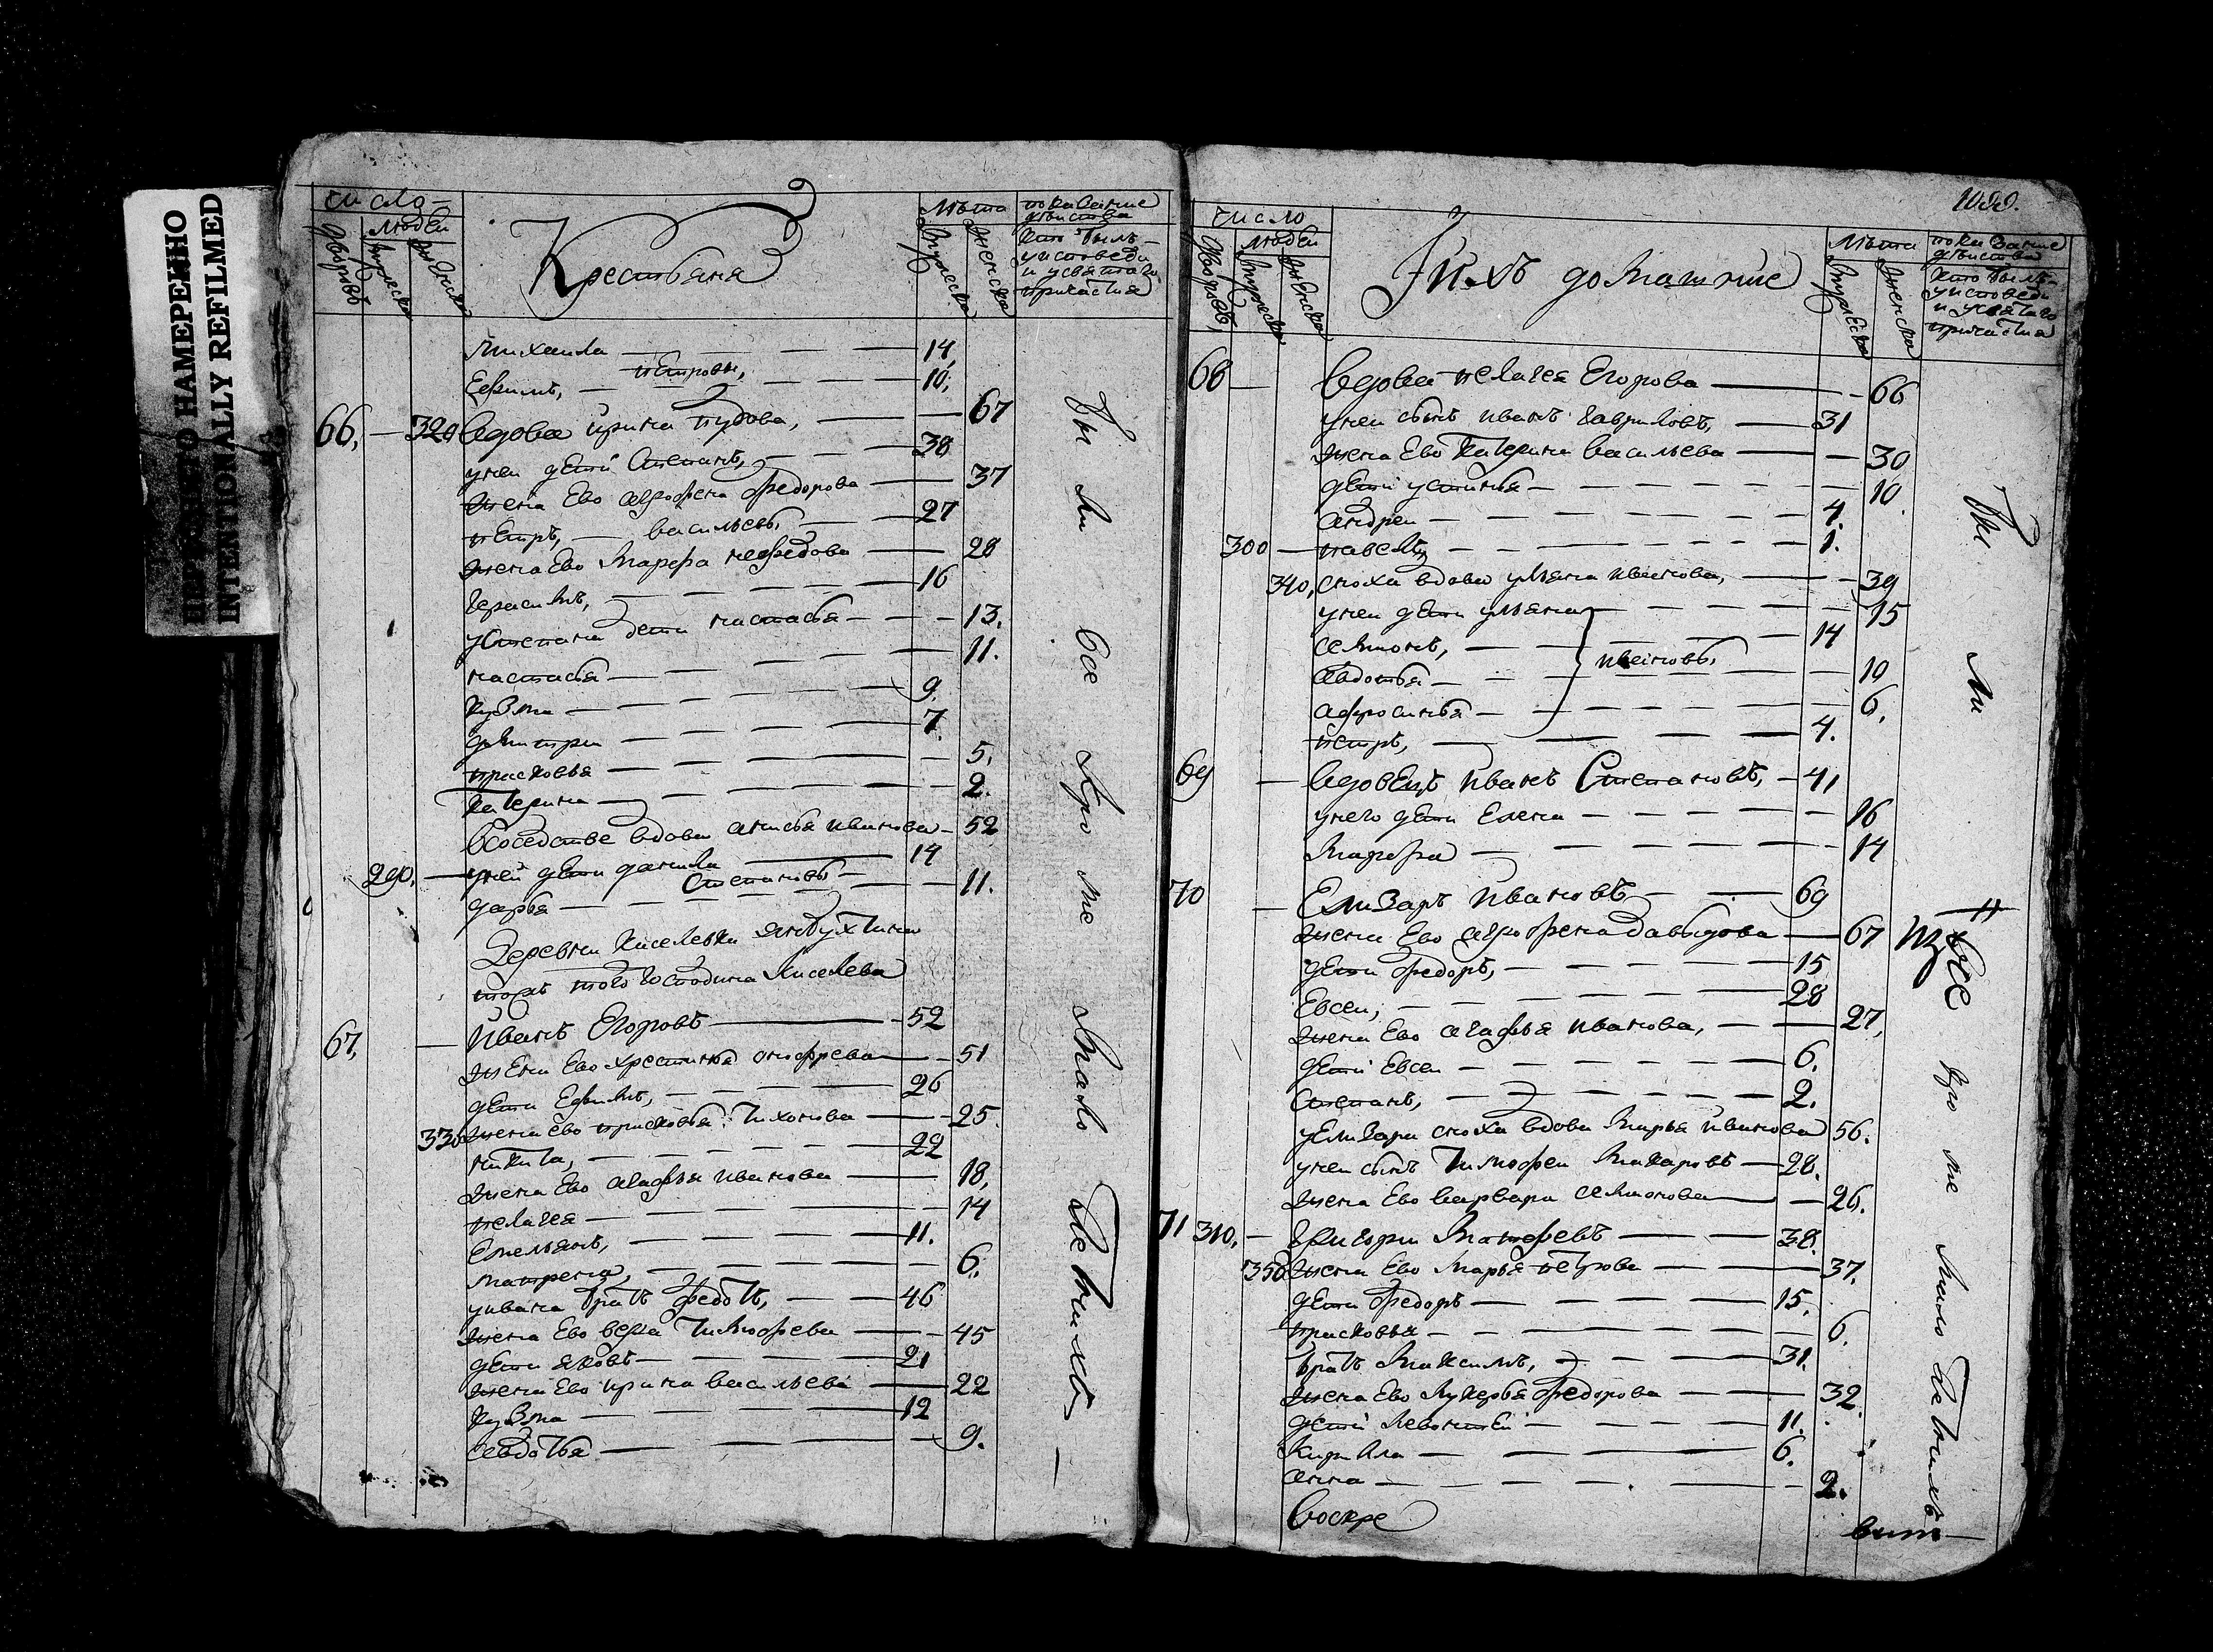 НЕПРЕМЕННО НАМЕРЕННО
INTENTIONALLY REFILMED
число
людей
дворовъ
мужеска
женска
Крестьяня
Лѣта
мужеска
женска
показание
действа
кто былъ
уисповеди
и усвятаго
причастия
михаила — 14,
петровы,
Ефимъ, — 10,
66, — 320 Вдова ирина пудова, — 67
унеи дети Степанъ, — 38
жена Ево агрофена федорова — 37
петръ, — васильевы — 27
жена Ево марфа нефедова — 28
Герасимъ, — 16
устепана дети настасья — 13.
настасья — 11.
кузма — 9.
дмитри — 7.
прасковья — 5.
катерина — 2.
Всоседстве вдова анисья иванова — 52
290. — унеи дети данила — 14
Степановы
дарья — 11.
Деревни киселевки
тогожъ господина киселева
67, — Иванъ Егоровъ — 52
жена Ево хрестинья онофрева — 51
дети Ефимъ, — 26
330 жена Ево прасковья Тихонова — 25.
никита, — 22
жена Ево агафья иванова — 18,
пелагея — 14
Емельянъ, — 11.
матрена, — 6.
уивана братъ федотъ, — 46
жена Ево вера Тимофева — 45
дети яковъ — 21
жена Ево ирина васильева — 22
кузма — 12
авдотья — 9.
Бы ли Все Кро ме мало летныхъ —
число
людей
дворовъ,
мужеска
женска
Ихъ домашние
Лѣта
мужеска
женска
показание
действа
кто былъ
уисповеди
и усвятаго
причастия
68 — Вдова пелагея Егорова — 66
унеи сынъ иванъ гавриловъ, — 31
жена Ево катерина васильева — 30
дети устинья — 10.
андреи — 4.
300 — павелъ — 1.
340, сноха вдова ульяна иванова, — 39
унеи дети ульяна — 15
семионъ, — 14
ивановы
Авдотья — 10
афросинья — 6.
петръ, — 4.
69 — Вдовецъ иванъ Степановъ, — 41
унего дети Елена — 16
марфа — 14
70 — Елизаръ ивановъ — 69
жена Ево агрофена давыдова — 67
дети федоръ, — 15
Евсеи, — 28
жена Ево агафья иванова, — 27,
дети Евсеи — 6.
степанъ, — 2.
уелизара сноха вдова марья иванова 56.
унеи сынъ Тимофеи макаровъ — 28.
жена Ево варвара семионова — 26.
71 310. — Григори матфевъ — 38.
350 жена Ево марья петрова — 37.
дети федоръ — 15.
прасковья — 6.
братъ максимъ, — 31.
жена Ево лукерья федорова — 32.
дети левонтеи — 11.
Кирила — 6.
анна — 2.
Воскре
Бы ли Все кро ме мало летныхъ